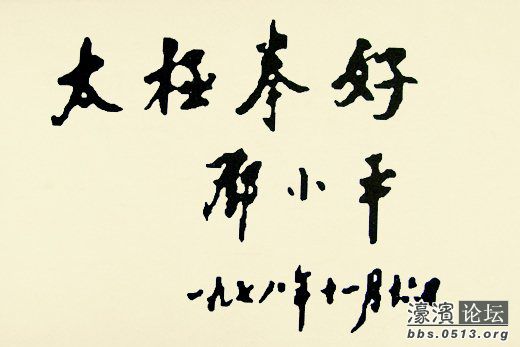 太极拳好
邓小平
一九七八年十一月十六日
濠滨论坛
bbs.0513.org